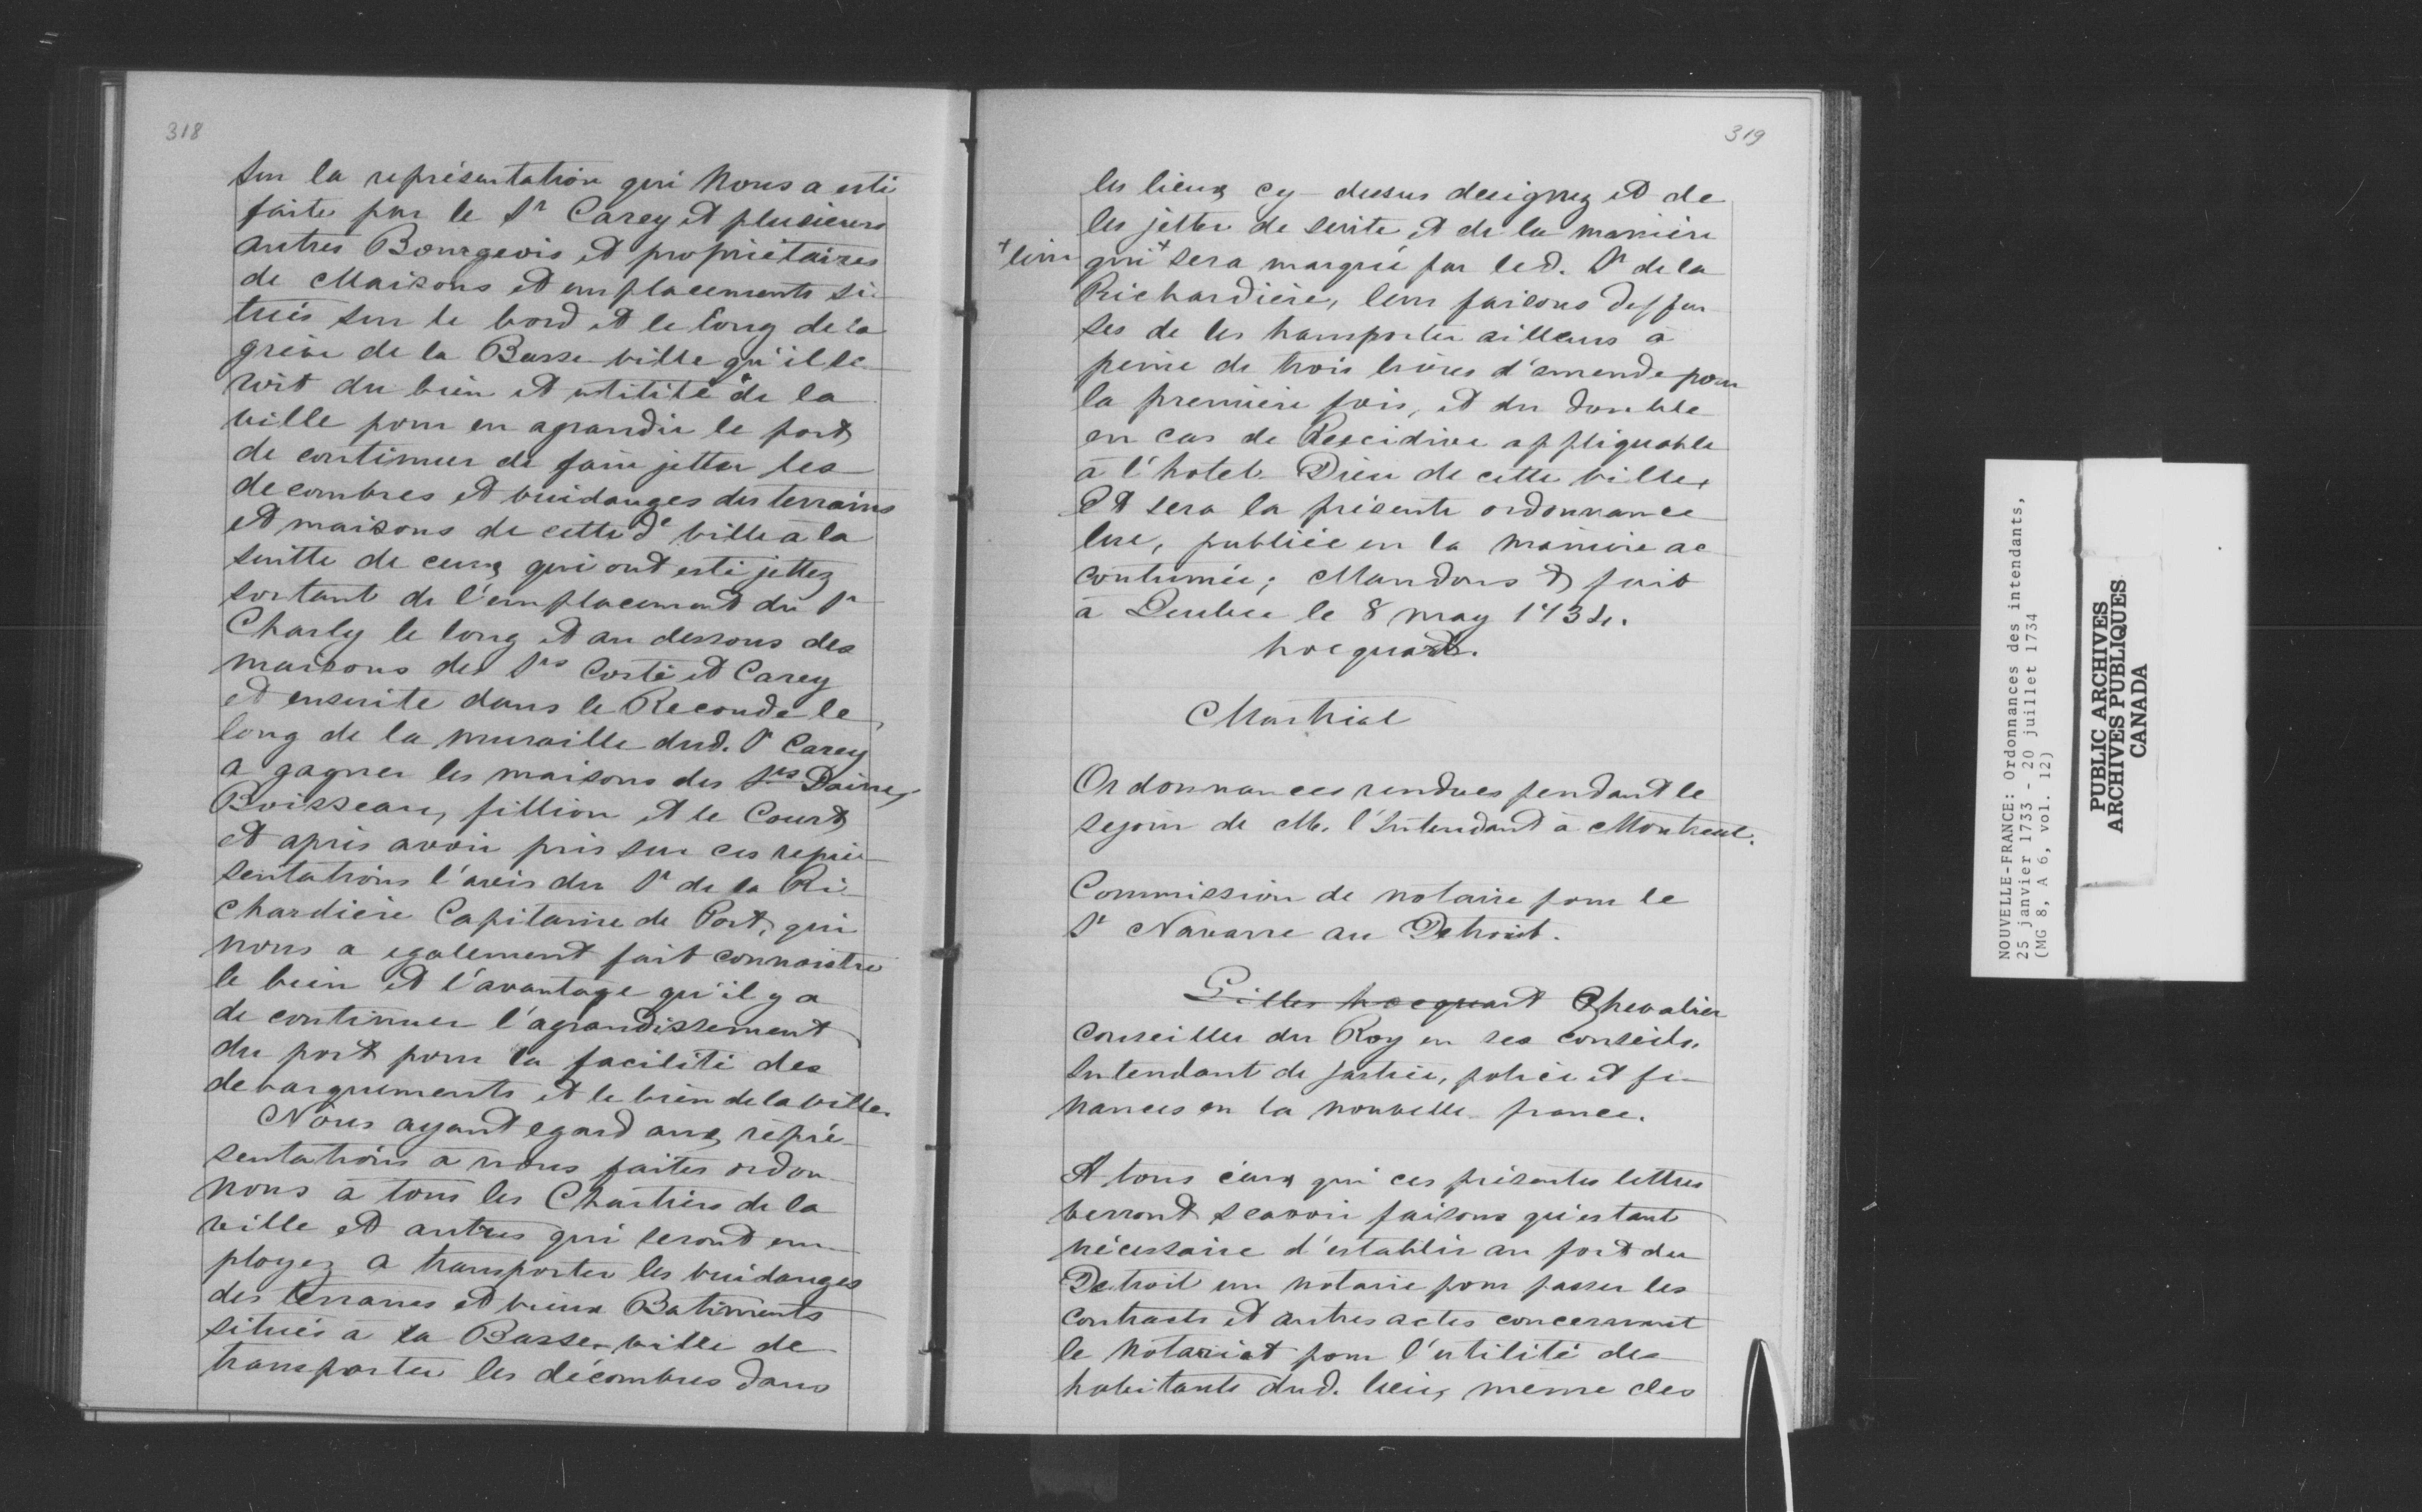 318
sur la représentation qui Nous a esté
faite par le Sr Carey et plusieurs
autres Bourgeois et propriétaires
de Maisons et emplacements si-
tués sur le bord et le long de la
grève de la Basse ville qu'il se-
roit du bien et utilité de la
ville pour en agrandir le port
de continuer de faire jetter les
decombres et vuidanges des terrains
et maisons de cette de ville à la
suitte de ceux qui ont esté jettez
sortant de l'emplacement du Sr
Charly le long et au dessous des
maisons des Srs Costé et Carey
et ensuite dans le Reconde le
long de la muraille dud. Sr Carey
a gagner les maisons des Srs Daine,
Boisseau, fillion et le Court,
et après avoir pris sur ces repré-
sentations l'avis du Sr de la Ri-
chardière Capitaine de Port, qui
nous a egalement fait connoistre
le bien et l'avantage qu'il y a
de continuer l'agrandissement
du port pour la facilité des
debarquements et le bien de la ville.
Nous ayant egard aux repré-
sentations à nous faites ordon-
nons à tous les Chartiers de la
ville et autres qui seront em-
ployez a transporter les vuidanges
des terrains et vieux Batiments
situés à la Basse-ville de
transporter les décombres dans
319
les lieux cy-dessus designez et de
les jetter de suite et de la manière
+ leur
qui + sera marqué par led. Sr de la
Richardière, leur faisons deffen-
ses de les transporter ailleurs à
peine de trois livres d'amende pour
la première fois, et du double
en cas de Rescidive appliquable
à l'hotel-Dieu de cette ville,
Et sera la présente ordonnance
lue, publiée en la manière ac
coutumée; Mandons &c fait
à Quebec le 8 may 1734.
hocquart.
Martial
Ordonnances rendues pendant le
sejour de M. l'Intendant à Montreal.
Commission de notaire pour le
Sr Navarre au Detroit.
Gilles hocquart Chevalier
Conseiller du Roy en ses conseils,
Intendant de justice, police et fi-
nances en la nouvelle-france.
A tous ceux qui ces présentes lettres
verront scavoir faisons qu'estant
nécessaire d'establir au fort du
Detroit un notaire pour passer les
contracts et autres actes concernant
le notariat pour l'utilité des
habitants dud. lieu, meme des
NOUVELLE-FRANCE: Ordonnances des intendants,
25 janvier 1733 - 20 juillet 1734
(MG 8, A 6, vol. 12)
PUBLIC ARCHIVES
ARCHIVES PUBLIQUES
CANADA